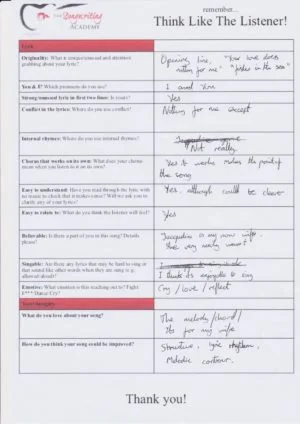 The Songwriting
ACADEMY
remember...
Think Like The Listener!
Lyric
Originality: What is unique/unusual and attention
grabbing about your lyric?
Opening line, "Your love does
nothing for me" "fishes in the sea"
You & I? Which pronouns do you use?
I and You
Strong/unusual lyric in first two lines: Is yours?
Yes
Conflict in the lyrics: Where do you use conflict?
Nothing for me except
Internal rhymes: Where do you use internal rhymes?
Not really
Chorus that works on its own: What does your chorus
mean when you listen to it on its own?
Yes it works makes the point of
the song
Easy to understand: Have you read through the lyric with
no music to check that it makes sense? Will we ask you to
clarify any of your lyrics?
Yes, although could be clearer
Easy to relate to: What do you think the listener will feel?
Yes
Believable: Is there a part of you in this song? Details
please!
Jacqueline is my now wife.
She very nearly wasn't!
Singable: Are there any lyrics that may be hard to sing or
that sound like other words when they are sung (e.g.
allowed/aloud)?
I think its enjoyable to sing
Emotive: What emotion is this reaching out to? Fight
F*** Dance Cry?
Cry / love / reflect
What do you love about your song?
The melody / chord /
Its for my wife
How do you think your song could be improved?
Structure, lyric rhythm,
Melodic contour.
Thank you!